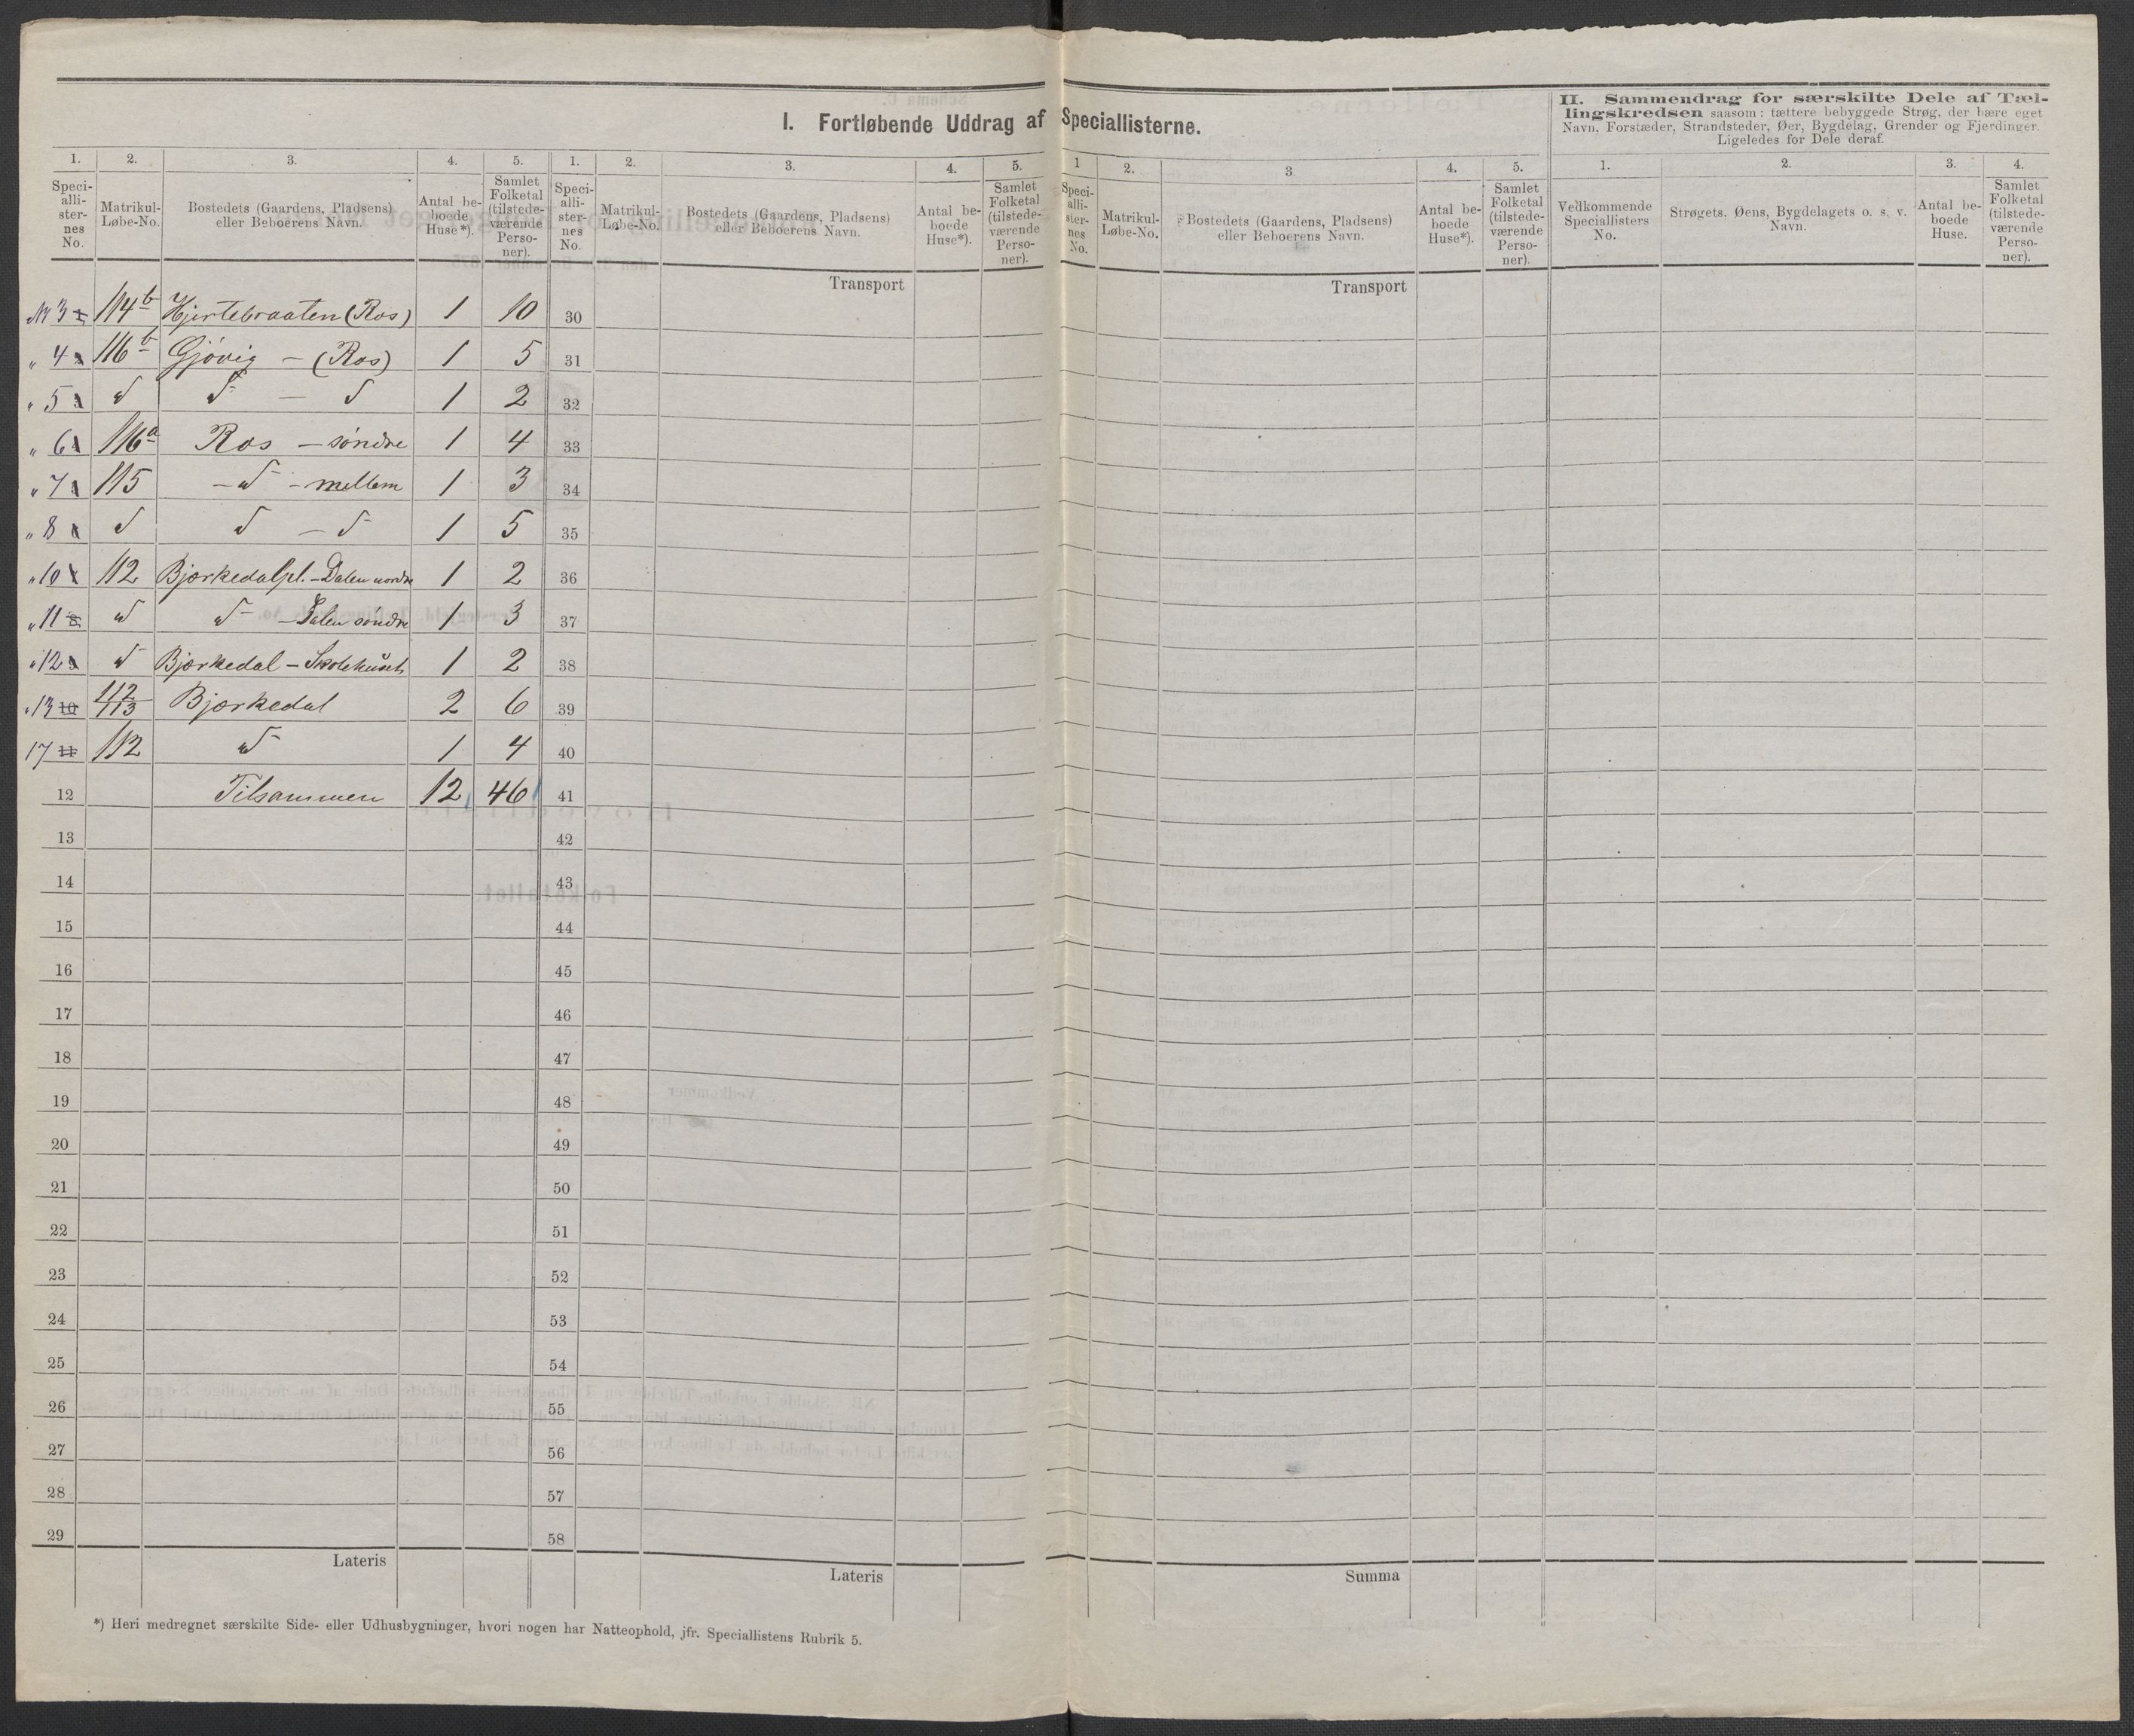 I. Fortløbende Uddrag af Speciallisterne.
II. Sammendrag for særskilte Dele af Tæl-
lingskredsen saasom: tættere bebyggede Strøg, der bære eget
Navn, Forstæder, Strandsteder, Øer, Bygdelag, Grender og Fjerdinger.
Ligeledes for Dele deraf.
1. 2. 3. 4. 5. 1. 2. 3. 4. 5. 1 2. 3 4. 5. 1. 2. 3. 4.
Speci-
alli-
ster-
nes
No.
Matrikul-
Løbe-No.
Bostedets (Gaardens, Pladsens)
eller Beboerens Navn.
Antal be-
boede
Huse*).
Samlet
Folketal
(tilstede-
værende
Perso-
ner).
Speci-
alli-
ster-
nes
No.
Matrikul-
Løbe-No.
Bostedets (Gaardens, Pladsens)
eller Beboerens Navn.
Antal be-
boede
Huse*).
Samlet
Folketal
(tilstede-
værende
Perso-
ner).
Speci-
alli-
ster-
nes
No.
Matrikul-
Løbe-No.
Bostedets (Gaardens, Pladsens)
eller Beboerens Navn.
Antal be-
boede
Huse*).
Samlet
Folketal
(tilstede-
værende
Perso-
ner).
Vedkommende
Speciallisters
No.
Strøgets, Øens, Bygdelagets o. s. v.
Navn.
Antal be-
boede
Huse.
Samlet
Folketal
(tilstede-
værende
Perso-
ner).
Transport Transport
No 3 114b Hjertebraaten (Ros) 1 10 30
" 4 116b Gjøvig - (Ros) 1 5 31
" 5 d d - d 1 2 32
" 6 116a Ros - søndre 1 4 33
" 7 115 - d - mellem 1 3 34
" 8 d d - d 1 5 35
" 10 112 Bjørkedal pl. - Dalen nordre 1 2 36
" 11 d d - Dalen søndre 1 3 37
" 12 d Bjørkedal - Skolehuset 1 2 38
" 13 10 112/113 Bjørkedal 2 6 39
17 11 112 d 1 4 40
12 Tilsammen 12 46 41
13 42
14 43
15 44
16 45
17 46
18 47
19 48
20 49
21 50
22 51
23 52
24 53
25 54
26 55
27 56
28 57
29 58
Lateris Lateris Summa
*) Heri medregnet særskilte Side- eller Udhusbygninger, hvori nogen har Natteophold, jfr. Speciallistens Rubrik 5.